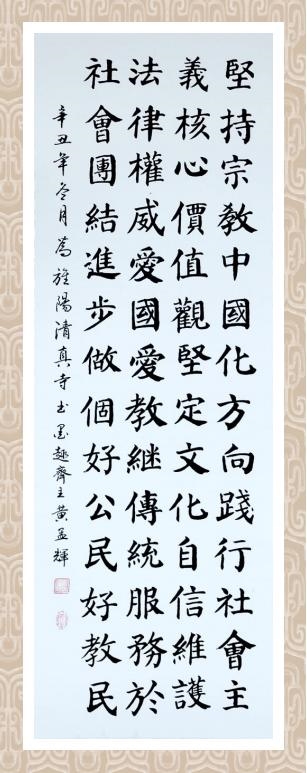 堅持宗教中國化方向踐行社會主
義核心價值觀堅定文化自信維護
法律權威愛國愛教継傳統服務於
社會團結進步做個好公民好教民
辛丑年冬月為旌陽清真寺書墨趣齋主黃孟輝